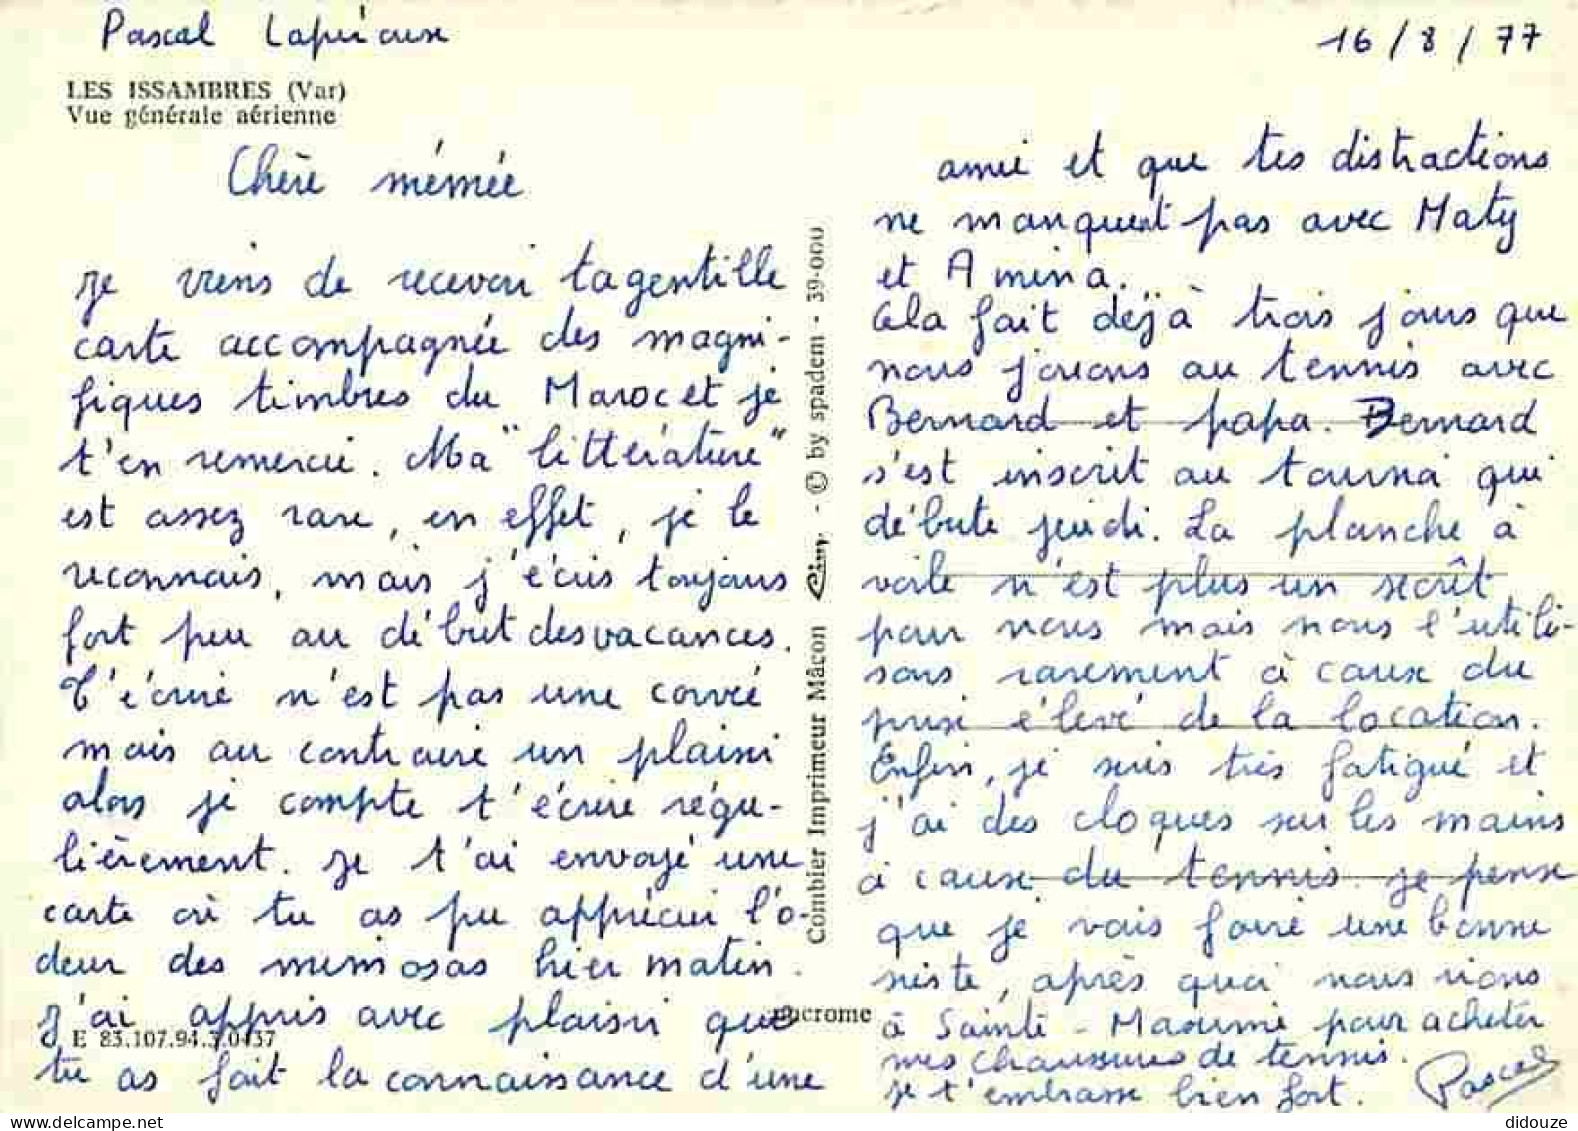 Pascal Lapérouse
16/8/77
LES ISSAMBRES (Var)
Vue générale aérienne
Chère mémée
Je viens de recevoir ta gentille
carte accompagnée des magni-
fiques timbres du Maroc et je
t'en remercie. Ma "littérature"
est assez rare, en effet, je le
reconnais, mais j'écris toujours
fort peu au début des vacances.
T'écrire n'est pas une corvée
mais au contraire un plaisir
alors je compte t'écrire régu-
lièrement. Je t'ai envoyé une
carte où tu as pu apprécier l'o-
deur des mimosas hier matin.
J'ai appris avec plaisir que
E 83.107.94.3.0437
tu as fait la connaissance d'une
Combier Imprimeur Mâcon Cim. - © by spadem - 39-000
amie et que tes distractions
ne manquent pas avec Maty
et Amina.
Cela fait déjà trois jours que
nous jouons au tennis avec
Bernard et papa. Bernard
s'est inscrit au tournoi qui
débute jeudi. La planche à
voile n'est plus un secrêt
pour nous mais nous l'utili-
sons rarement à cause du
prix élevé de la location.
Enfin, je suis très fatigué et
j'ai des cloques sur les mains
à cause du tennis. Je pense
que je vais faire une bonne
sieste, après quoi nous irons
à Sainte-Maxime pour acheter
mes chaussures de tennis.
Je t'embrasse bien fort. Pascal
didouze